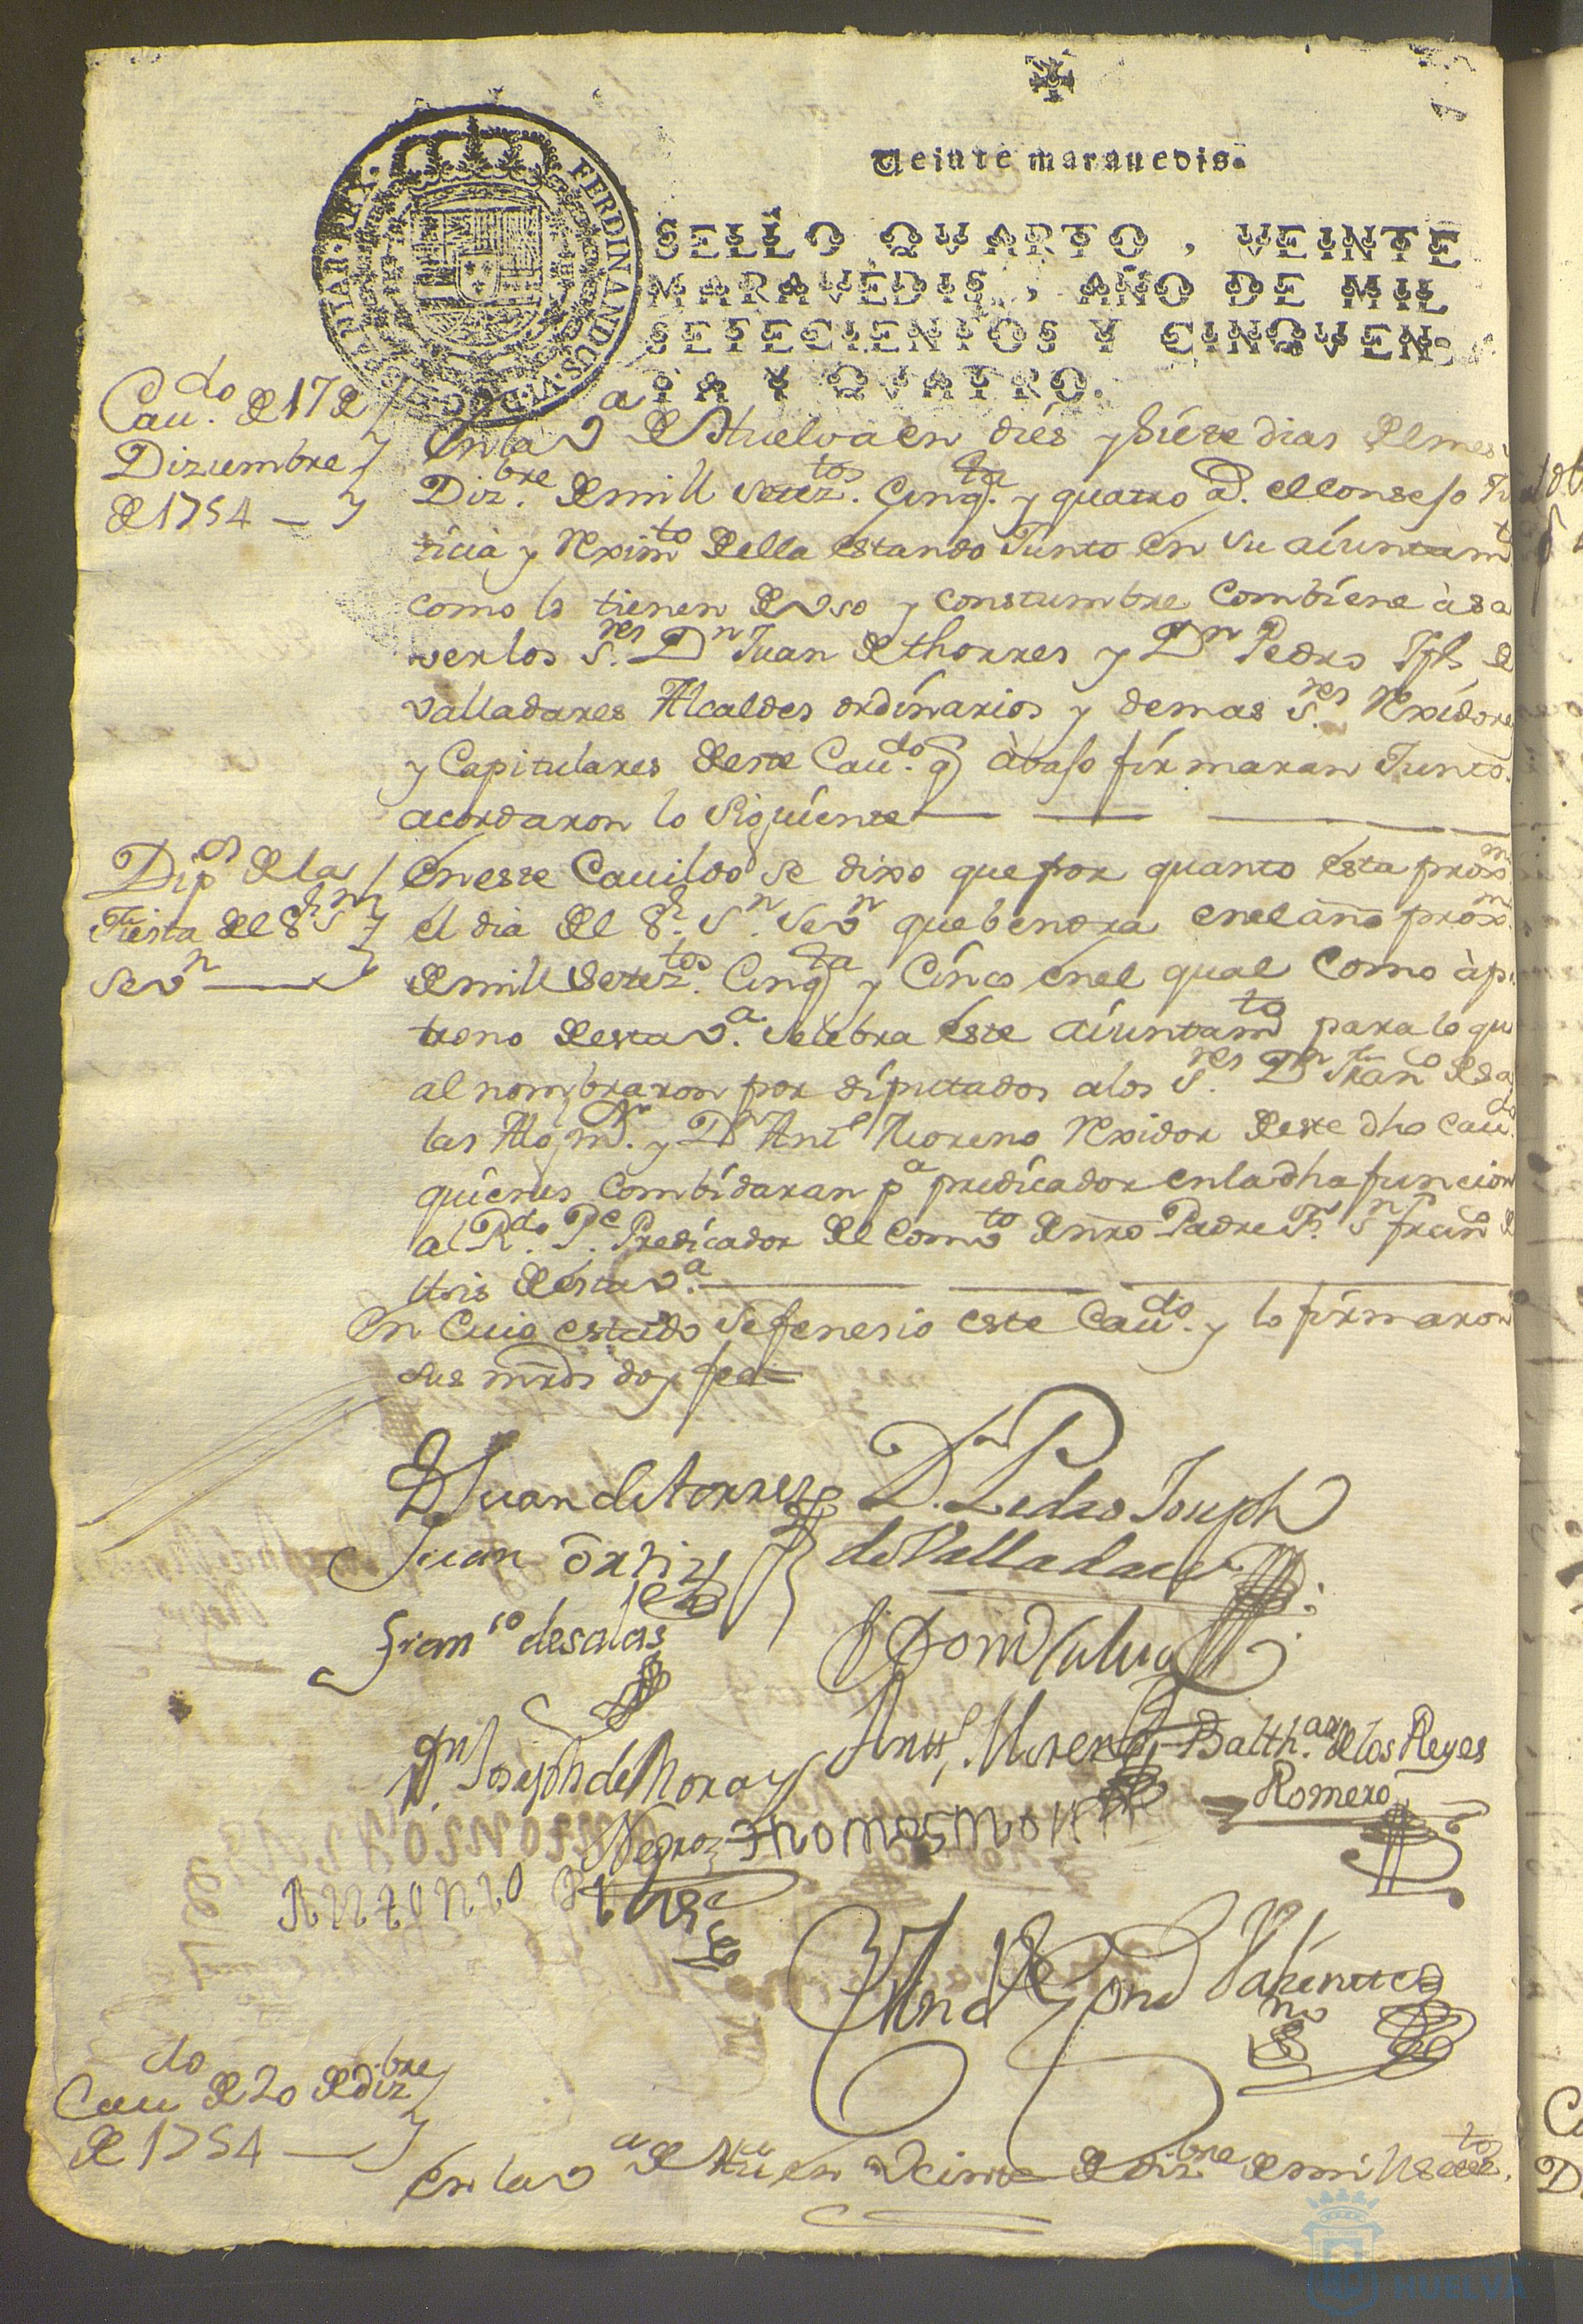 Veinte marauedis.
SELLO QVARTO, VEINTE
MARAVEDIS, AÑO DE MIL
SETECIENTOS Y CINQVEN-
TA Y QVATRO.
FERDINANDUS VI D G
Cau.do de 17 de
Diziembre
de 1754
En la Va de Huelva en dies y siete dias del mes
Diz.bre de mill setez.tos Cinq.ta y quatro a.s el Consejo Jus
ticia y Rexim.to della estando Junto en su aiuntam.to
como lo tienen de uso y constumbre Combiene à sa
ver los S.res Dn Juan de thorres y Dn Pedro Jph de
valladares Alcaldes ordinarios y demas S.res Rexidores
y Capitulares deste Cau.do q abajo firmaran Junto
acordaron lo siguiente
Dip.os de la
Fiesta del S.r Sn
Sevn
En este Cavildo se dixo que por quanto esta prox.m
el dia del S.r Sn Sevn que bendra en el año prox.m
de mill setez.tos Cinq.ta y Cinco en el qual Como à pa
trono de esta V.a selebra este aiuntam.to para lo qu
al nombraron por diputados a los S.res Dn Fran.co de sa
las Alg m.r y Dn Ant.o Moreno Rexidor de este dho Cau.do
quienes combidaran p.a predicador en la dha funcion
al R.do P.e Predicador del Comv.to de nro Padre S.r Sn fran.co de
Asis de esta V.a
En Cuio estado se fenesio este Cau.do y lo firmaron
sus mrds doy fee
D Juan de torres
Dn Pedro Joseph
de Valladares
Juan ortiz
Fran.co de salas
Antt.o Moreno
Balth.ar de los Reyes
Romero
Dn Joseph de Mora y
Negro
Thomas
Antonio
Cau.do de 20 de diz.bre
de 1754
En la Va de Hua en veinte de diz.bre de mil setez.tos
HUELVA